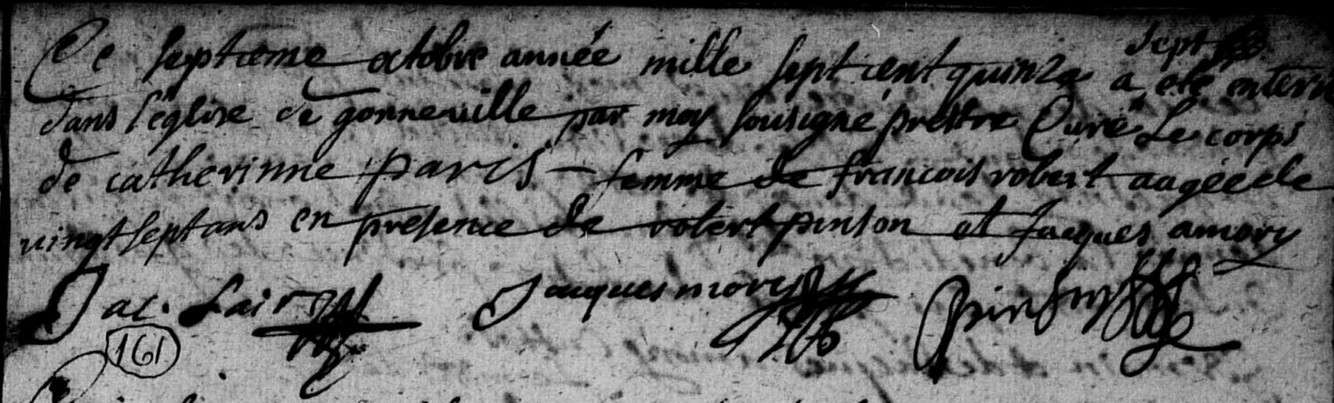 sept
Ce septieme octobre année mille sept cent quinze a été enterré
dans l'eglise de gonneville par moy sousigné prestre Curé Le corps
de catherinne paris femme de francois robert aagée de
vingt sept ans en presence de robert pinson et Jacques amory
Jac. Jacques mory pinson
161